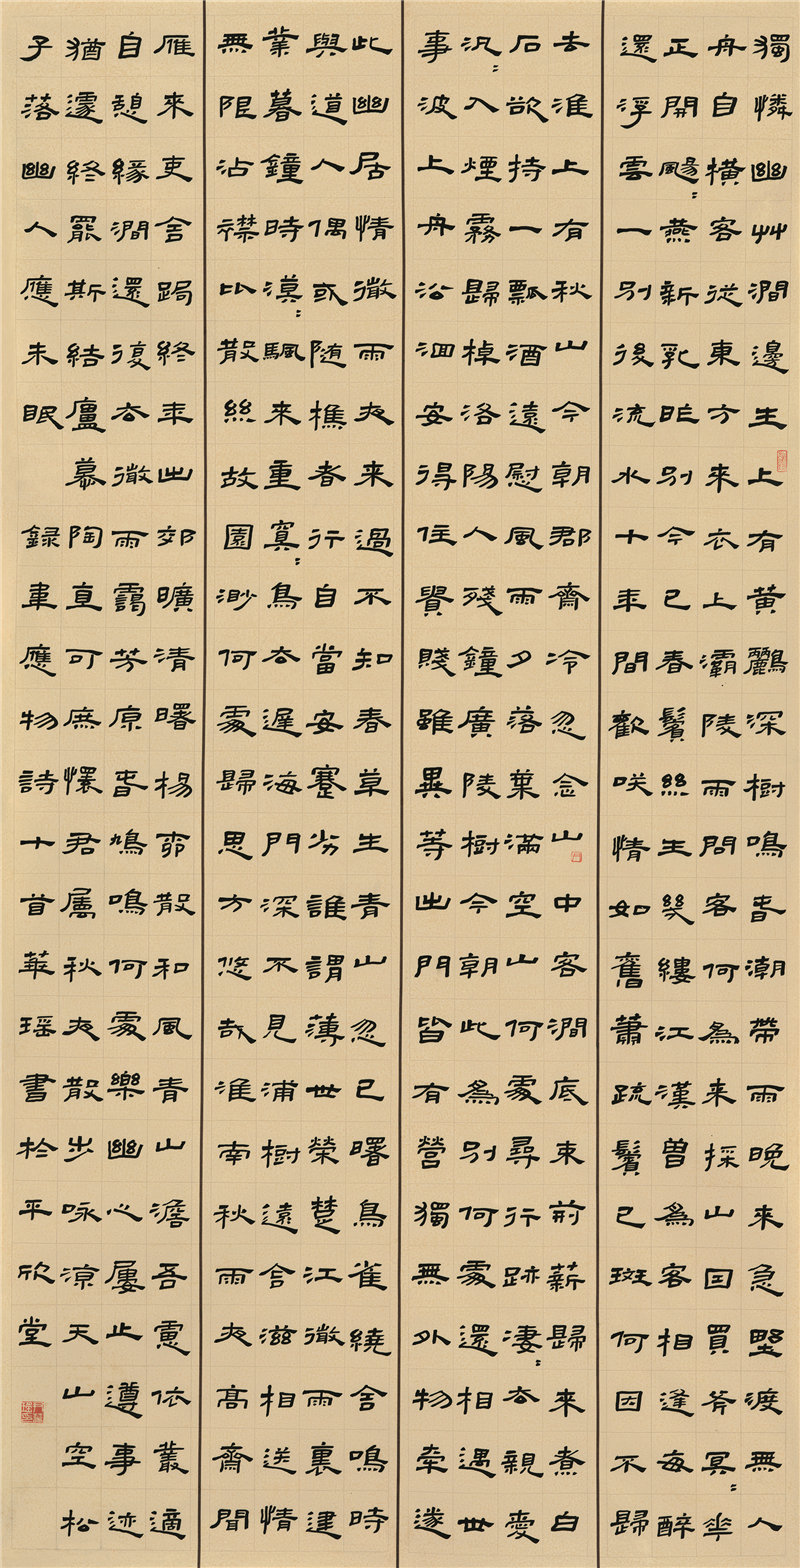 獨憐幽艸澗邊生上有黃鸝深樹鳴春潮帶雨晚來急野渡無人
舟自橫客從東方来衣上灞陵雨問客何為来採山因買斧冥〻華
正開颺〻燕新乳昨別今已春鬢絲生幾縷江漢曾為客相逢每醉
還浮雲一別後流水十年間歡咲情如舊蕭疏鬢已斑何因不歸
去淮上有秋山今朝郡齋冷忽念山中客澗底束荊薪歸来煮白
石欲持一瓢酒遠慰風雨夕落葉滿空山何處尋行跡凄〻去親愛
汎〻入煙霧歸棹洛陽人殘鐘廣陵樹今朝此為別何處還相遇世
事波上舟沿洄安得住貴賤雖異等出門皆有營獨無外物牽遂
此幽居情微雨夜来過不知春草生青山忽已曙鳥雀繞舍鳴時
與道人偶或随樵者行自當安蹇劣誰謂薄世榮楚江微雨裏建
業暮鐘時漠〻颿来重冥〻鳥去遲海門深不見浦樹遠含滋相送情
無限沾襟比散絲故園渺何處歸思方悠哉淮南秋雨夜高齋聞
雁来吏舍跼終年出郊曠清曙楊柳散和風青山澹吾慮依叢適
自憩緣澗還復去微雨靄芳原春鳩鳴何處樂幽心屢止遵事迹
猶遽終罷斯結廬慕陶直可庶懷君屬秋夜散步咏凉天山空松
子落幽人應未眠 録韋應物詩十首華瑶書於平欣堂